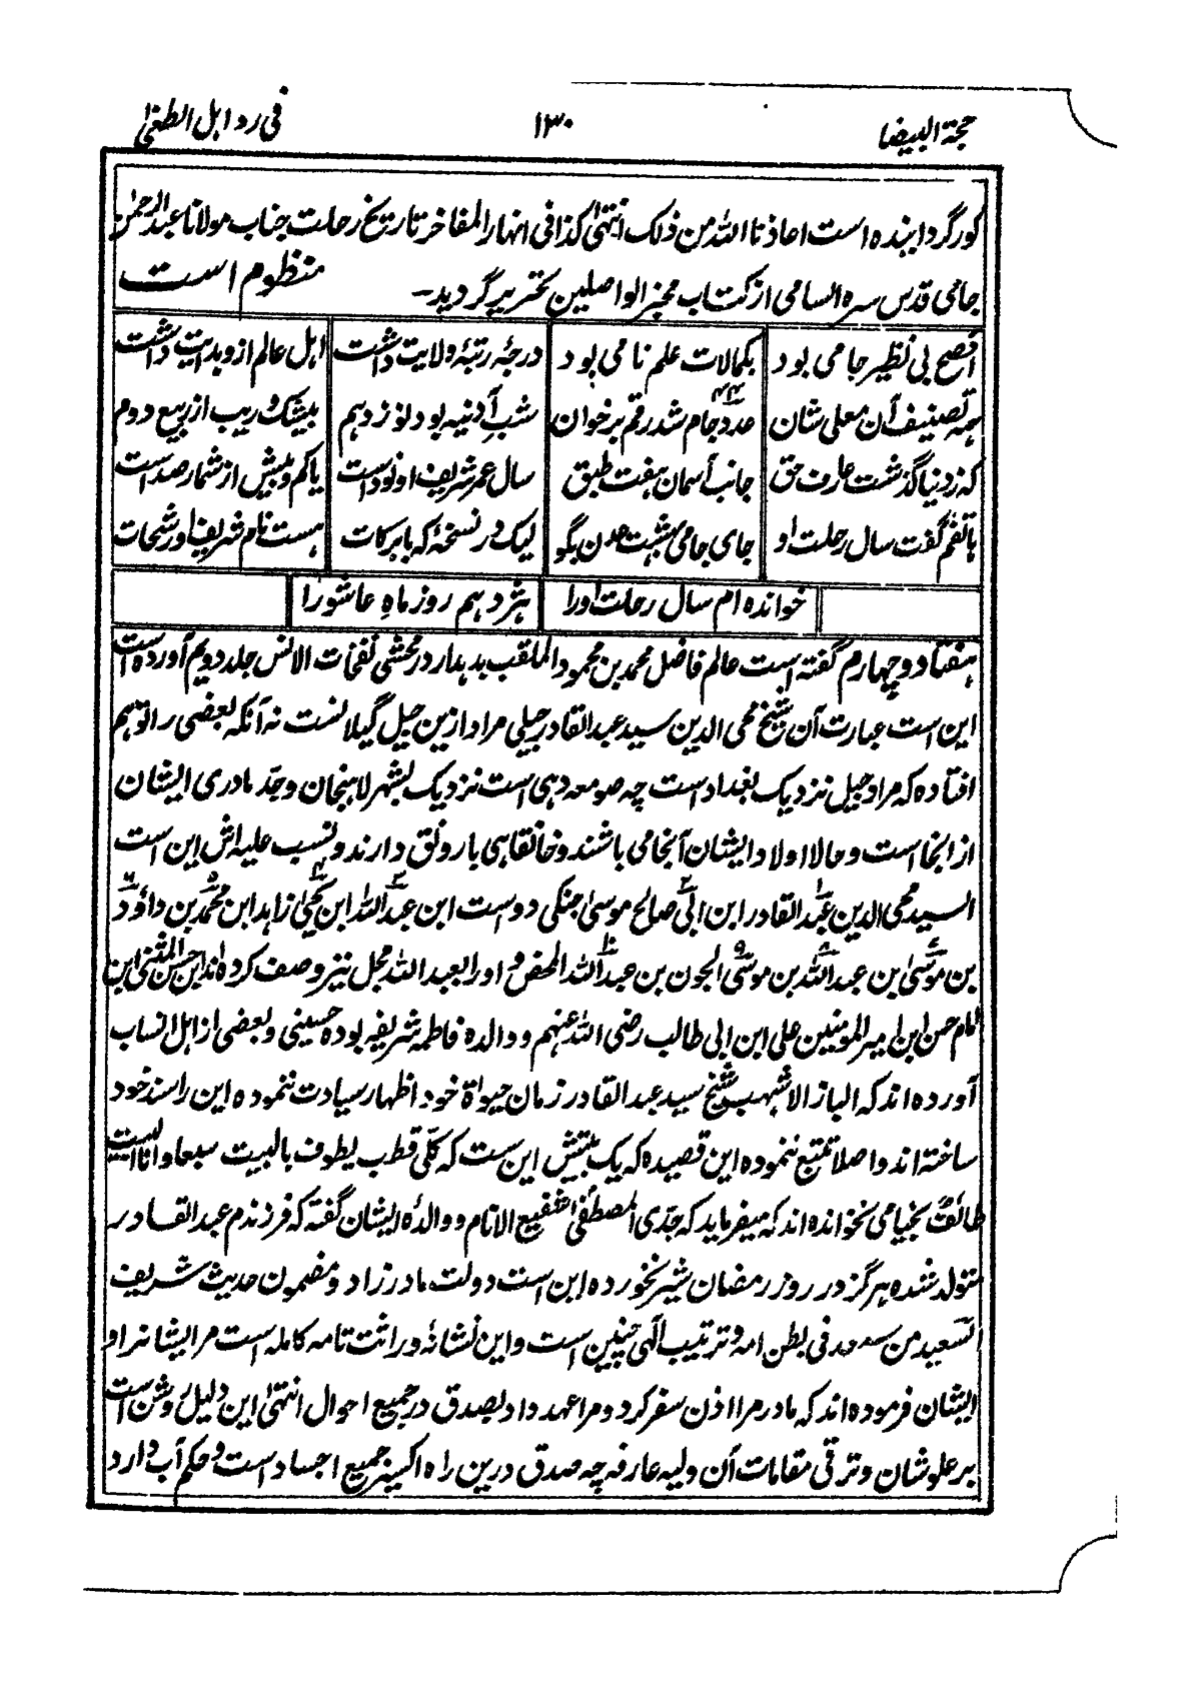 حجة البیضا ۱۳۰ فی رد اہل الطغیٰ
کور گردانیدہ است اعاذنا اللہ من ذلک انتہیٰ کذا فی انہار المفاخر تاریخ رحلت جناب مولانا عبد الرحمٰن
جامی قدس سرہ السامی از کتاب مخبر الواصلین تحریر گردید۔ منظوم است
افصح بی نظیر جامی بود بکمالات علم نامی بود درجۂ رتبۂ ولایت داشت اہل عالم از و ہدایت داشت
ہمہ تصنیف آن معلی شان عدد جام شد رقم برخوان ۴۴ شب آدنیہ بود نوزدہم بیشک و ریب از ربیع دوم
کہ ز دنیا گذشت عارف حق جانب آسمان ہفت طبق سال عمر شریف او نود است یا کم و بیش از شمار صد است
ہاتفم گفت سال رحلت او جای جامی بہشت عدن بگو لیک در نسخۂ کہ بابرکات ہست نام شریف او رشحات
خواندہ ام سال رحلت او را ہژدہم روز ماہ عاشورا
ہفتاد و چہارم گفتہ است عالم فاضل محمد بن محمود الملقب بدیدار در محشی نفحات الانس جلد دویم آوردہ است
این است عبارت آن شیخ محی الدین سید عبد القادر جیلی مراد ازین جیل گیلانست نہ آنکہ بعضی را توہم
افتادہ کہ مراد جیل نزدیک بغداد است چہ صومعہ دہی است نزدیک بشہر لاہنجان و جد مادری ایشان
از انجا است و حالا اولاد ایشان آنجا می باشند و خانقاہی بارونق دارند و نسب علیہ اش این است
السید محی الدین عبد القادر ابن ابی صالح موسیٰ جنگی دوست ابن عبد اللہ ابن یحییٰ زاہد ابن محمد بن داؤد
بن موسیٰ بن عبد اللہ بن موسیٰ الجون بن عبد اللہ المحض و او را بعبد اللہ مجل نیز وصف کردہ اند ابن حسن المثنیٰ ابن
امام حسن ابن امیر المومنین علی ابن ابی طالب رضی اللہ عنہم و والدہ فاطمہ شریفہ بودہ حسینی و بعضی از اہل انساب
آوردہ اند کہ الباز الاشہب شیخ سید عبد القادر زمان حیواۃ خود اظہار سیادت ننمودہ این را سند خود
ساختہ اند و اصلا تتبع ننمودہ این قصیدہ کہ یک بیتش این ست کہ کلّی قطب یطوف بالبیت سبعا و انا البیت
طائف بخیامی نخواندہ اند کہ میفرماید کہ جدّی المصطفٰی شفیع الانام و والدۂ ایشان گفتہ کہ فرزندم عبد القادر
متولد شدہ ہرگز در روز رمضان شیر نخوردہ این است دولت مادرزاد و مضمون حدیث شریف
السّعید من سعد فی بطن امہ و ترتیب الٰہی چنین است و این نشانۂ وراثت تامہ کاملہ است مر ایشانرا و
ایشان فرمودہ اند کہ مادر مرا اذن سفر کرد و مرا عہد داد بصدق در جمیع احوال انتہیٰ این دلیل روشن است
بر علو شان و ترقی مقامات آن ولیہ عارفہ چہ صدق درین راہ اکسیر جمیع اجساد است و حکم آب دارد